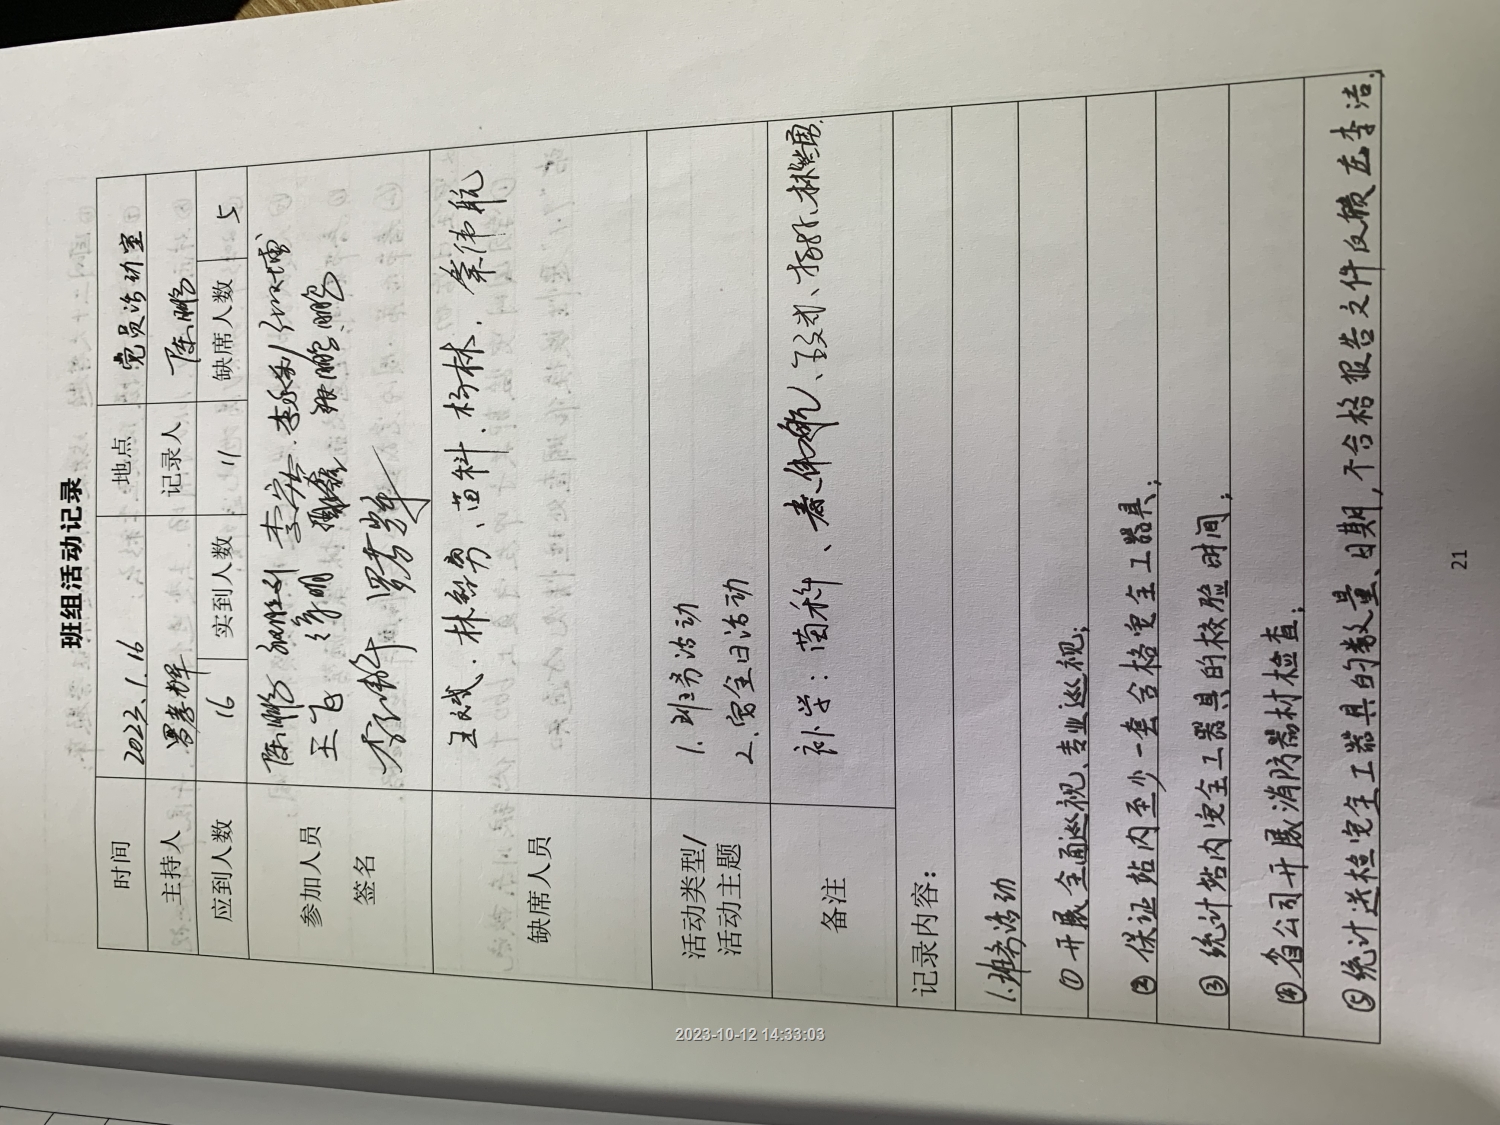 班组活动记录
时间 2023.1.16 地点 党员活动室
主持人 罗孝辉 记录人 陈鹏
应到人数 16 实到人数 11 缺席人数 5
参加人员 陈鹏 李宏 李永利
签名 王飞 徐明 张鹏鹏
罗孝辉
缺席人员 王斌、林继勇、苗科、杨林、秦伟航
活动类型/ 1.班务活动
活动主题 2.安全日活动
备注 补学:苗科、秦伟航、王斌、杨林、林继勇.
记录内容:
1.班务活动
①开展全面巡视、专业巡视;
②保证站内至少一套合格安全工器具;
③统计站内安全工器具的校验时间;
④省公司开展消防器材检查;
⑤统计送检安全工器具的数量、日期,不合格报告文件反馈至李洁.
21
2023-10-12 14:33:03